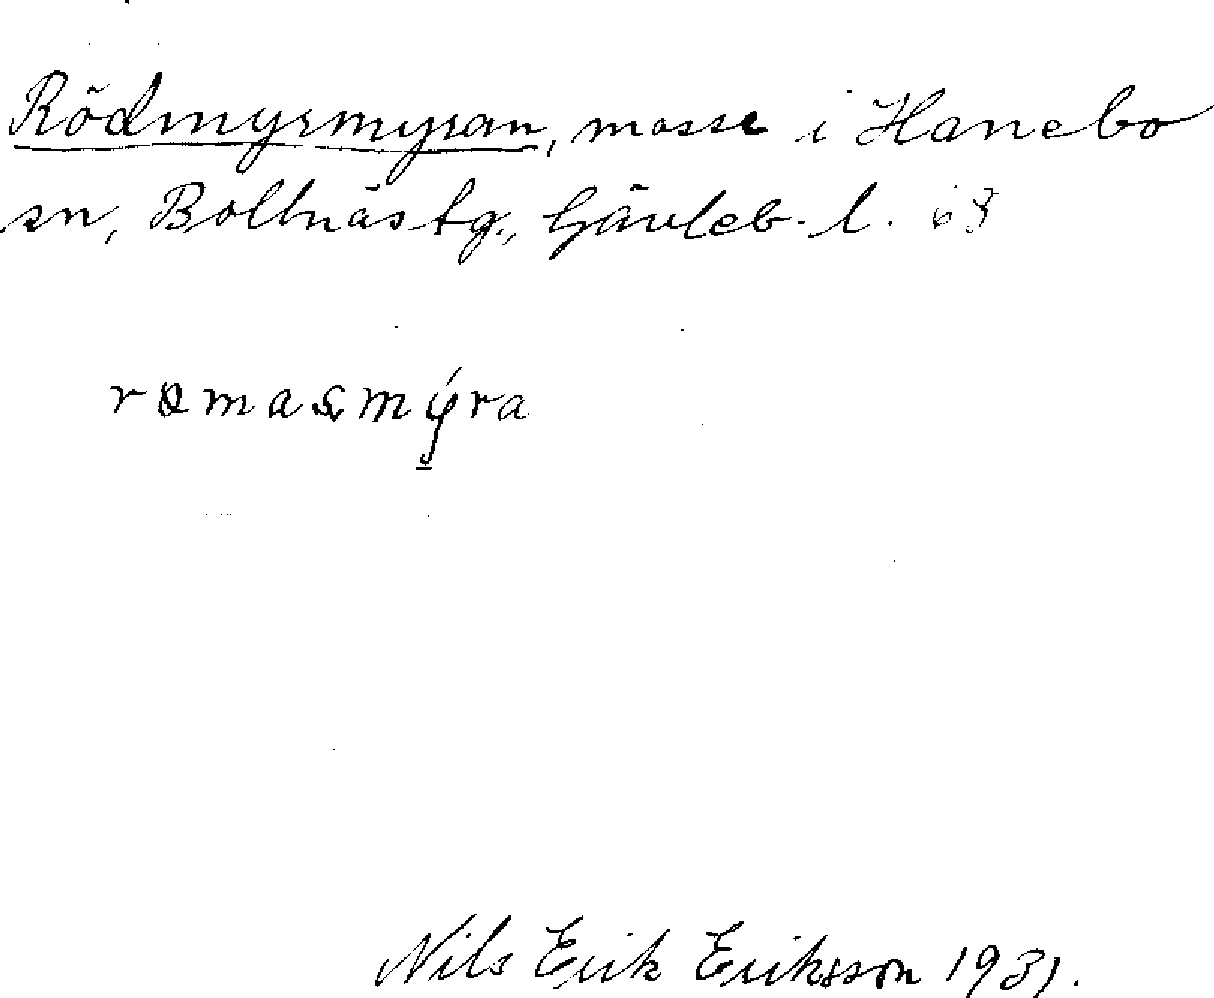 Rödmyrmyran, mosse i Hanebo
sn, Bollnäs tg., Gävleb. l.
Nils Erik Eriksson 1931.